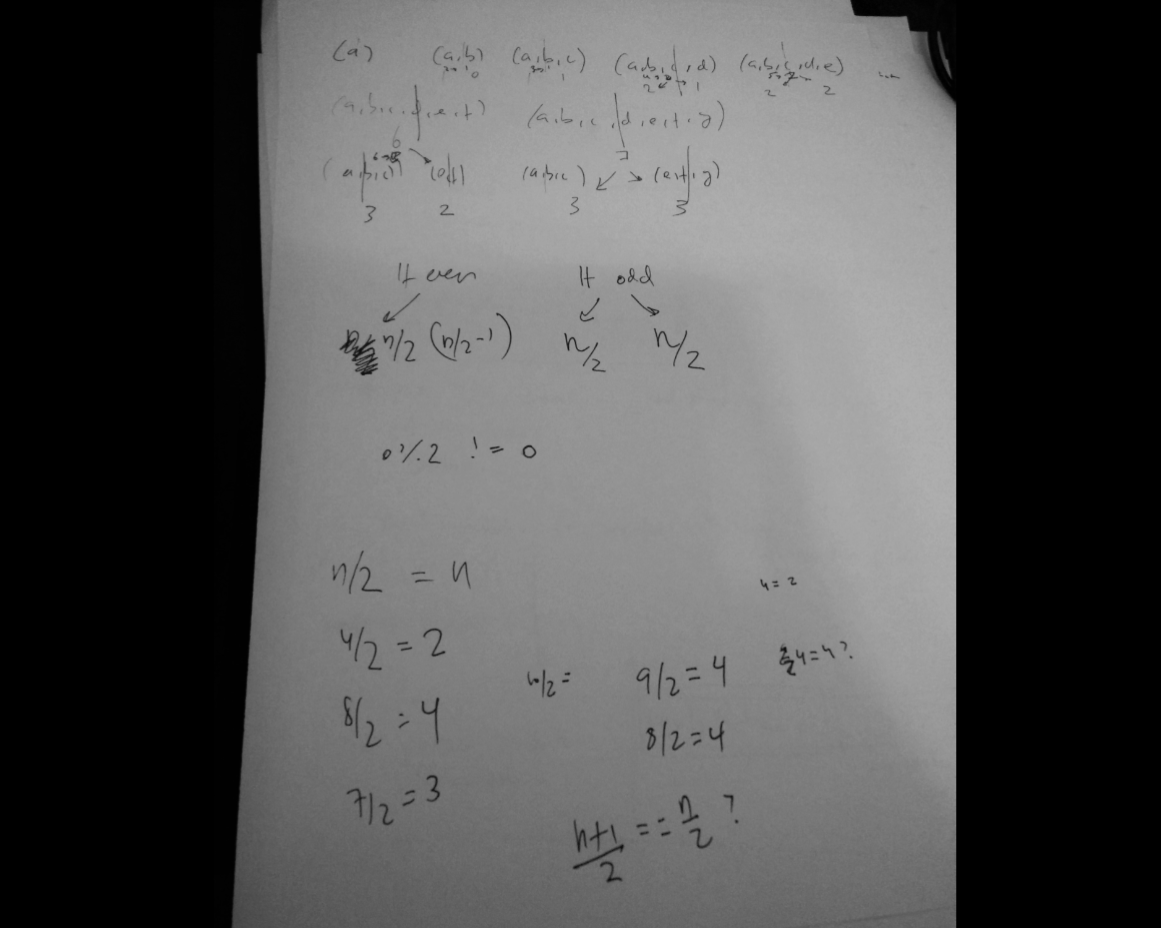 (a) (a,b) (a,b,c) (a,b,c,d) (a,b,c,d,e) ...
2 1 2 2
(a,b,c,d,e,f) (a,b,c,d,e,f,g)
6 7
(a,b,c) (e,f) (a,b,c) (e,f,g)
3 2 3 3
If even If odd
n/2 (n/2-1) n/2 n/2
0%2 != 0
n/2 = n
4/2 = 2
8/2 = 4
7/2 = 3
4=2
10/2=
9/2=4
8/2=4
n+1/2 == n/2 ?